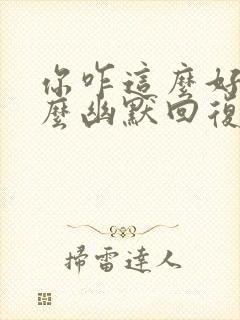 你咋這麼好
麼幽默回復
掃雷達人